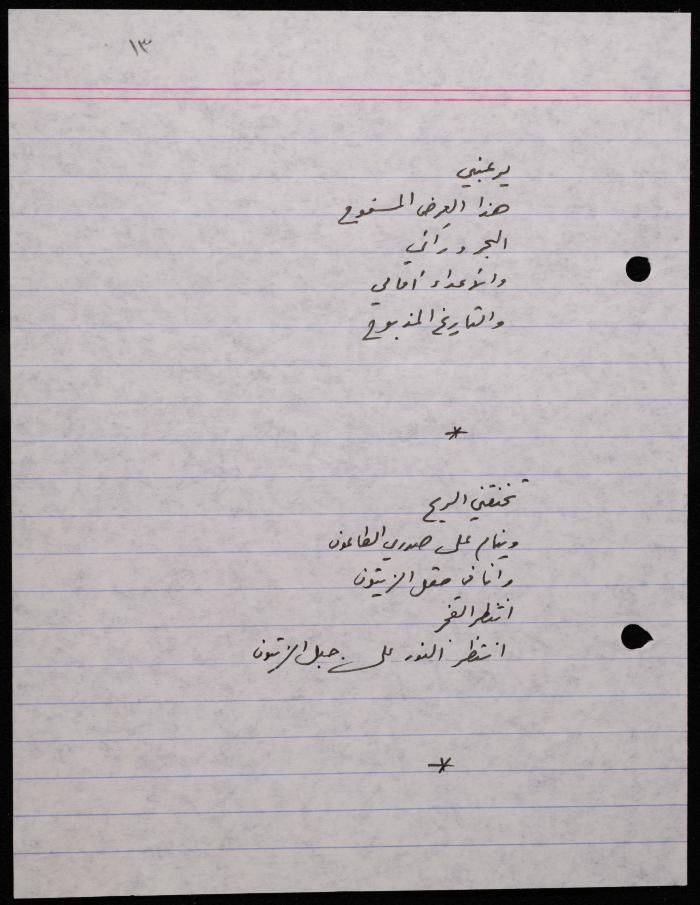 ١٣
يرعبني
هذا العرض المسفوح
البحر ورائي
والأعداء أمامي
والتاريخ المذبوح
*
تخنقني الريح
وينام على صدري الطاعون
وأنا في حقل الزيتون
انتظر الفجر
انتظر النور على جبل الزيتون
*